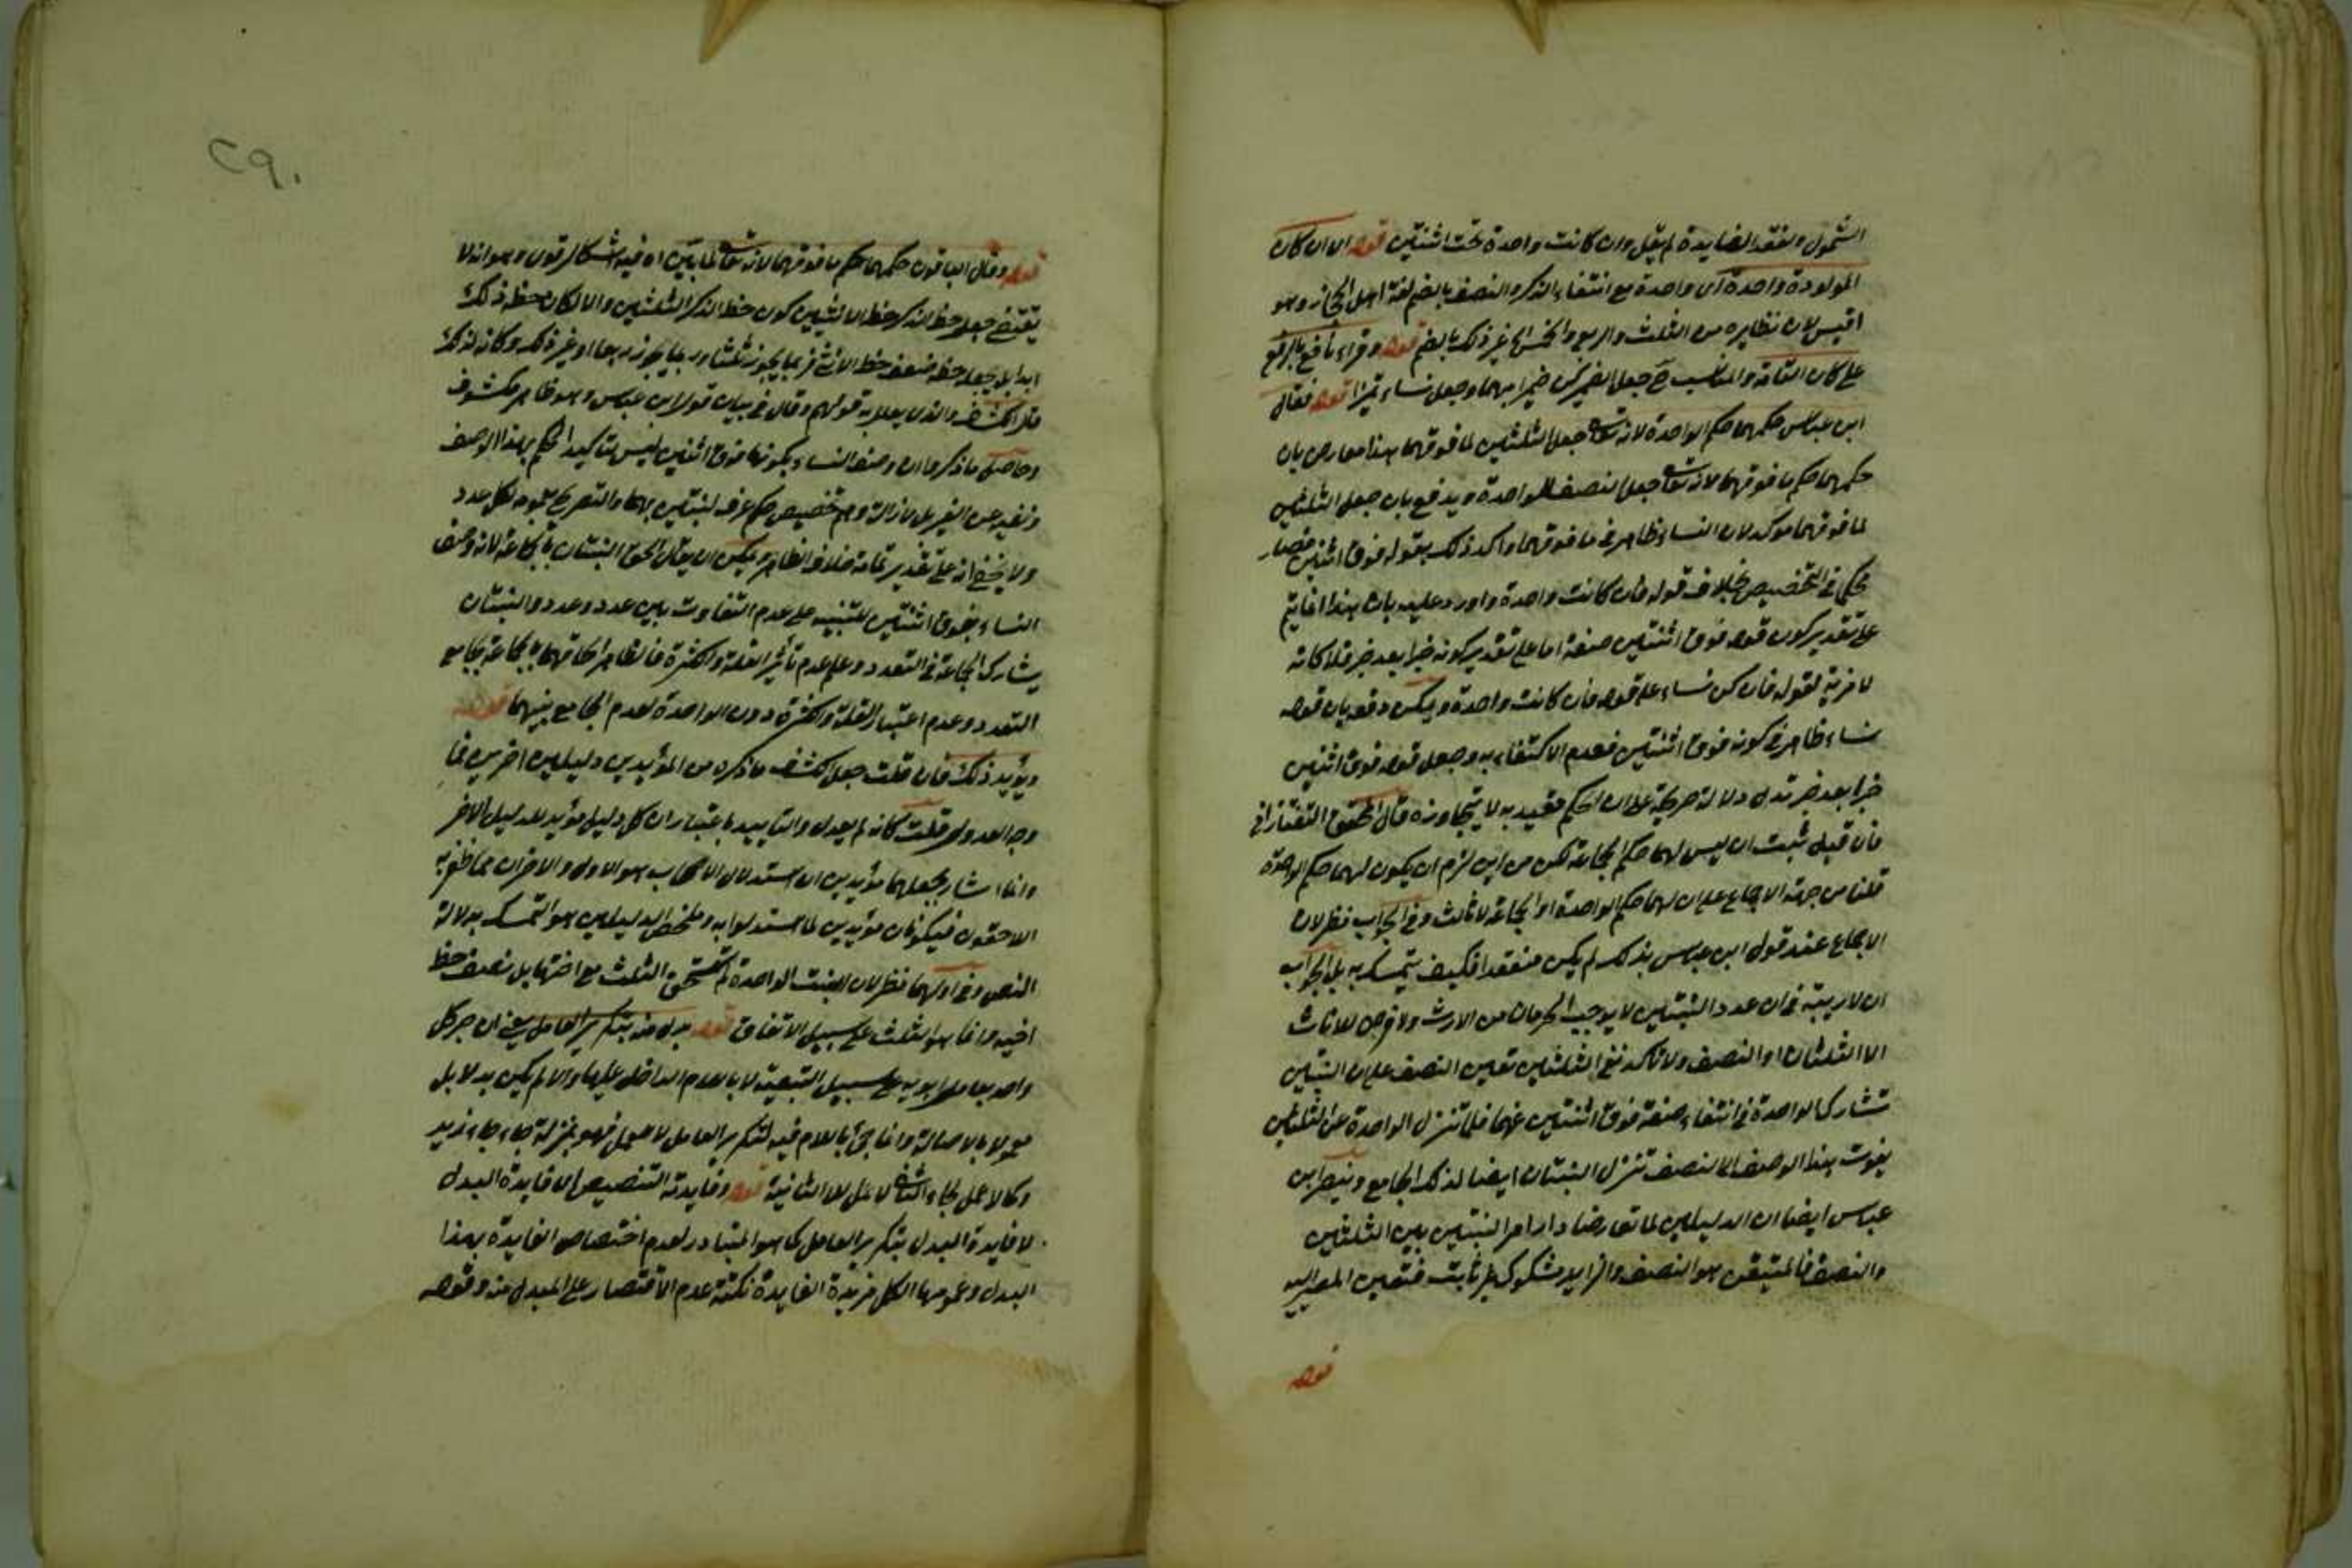 الشمول ولفقد الفايدة لم يقل وان كانت واحدة تحت اثنتين قوله اى ان كان
المولودة واحدة اى واحدة مع انتفاء الذكر والنصف بالضم لغة اهل الحجاز وهو
اقيس لان نظايره من الثلث والربع والخمس الى غير ذلك بالضم قوله وقراء نافع بالرفع
على كان التامة والمناسب ح جعل الضمير كن ضميرا مبهما وجعل نساء تميزا قوله فقال
ابن عباس حكمهما حكم الواحدة لانه تعالى جعل الثلثين لما فوقهما هذا معارض بان
حكمهما حكم ما فوقهما لانه تعالى جعل النصف للواحدة ويدفع بان جعل الثلثين
لما فوقهما موكد لان النساء ظاهر فى ما فوقهما واكد ذلك بقوله فوق اثنتين فصار
محكم فى التخصيص بخلاف قوله فان كانت واحدة واورد عليه بان هذا انما يتم
على تقدير كون قوله فوق اثنتين صفة اما على تقدير كونه خبرا بعد خبر فلا كانه
لا مزية لقوله فان كن نساء على قوله فان كانت واحدة ويمكن دفعه بان قوله
نساء ظاهر فى كونه فوق اثنتين فعدم الاكتفاء به وجعل قوله فوق اثنتين
خبرا بعد خبر تدل دلالة صريحة على ان الحكم مقيد به لا يتجاوزه قال المحقق التفتازانى
فان قيل ثبت ان ليس لهما حكم الجماعة لكن من اين لزم ان يكون لهما حكم الواحدة
قلنا من جهة الاجماع على ان لهما حكم الواحدة او الجماعة لا ثالث وفى الجواب نظر لان
الاجماع عند قول ابن عباس بذلك لم يكن منعقدا فكيف يتمسك به بل الجواب
ان لا ريبة فى ان عدد البنتين لا يوجب الحرمان من الارث ولا فرض للاناث
الا الثلثان او النصف ولا تاكد نفى الثلثين تعين النصف على ان البنتين
تشارك الواحدة فى انتفاء صفة فوق اثنتين عنهما فلما تنزل الواحدة عن الثلثين
بفوت هذا الوصف الى النصف تنزل البنتان ايضا لذلك الجامع وينصر ابن
عباس ايضا ان الدليلين لما تعارضا دار امر البنتين بين الثلثين
والنصف فالمتيقن هو النصف والزايد مشكوك غير ثابت فتعين المصير اليه
قوله
٢٩٠
قوله وقال الباقون حكمهما حكم ما فوقهما لانه تعالى لما بين اه فيه اشكال قوى وهو انه لا
يقتضى جعل حظ الذكر حظ الانثيين كون حظ الذكر الثلثين والا لكان حظه ذلك
ابدا بل يجعله حظه ضعف حظ الانثى فربما يكون ثلثا وربما يكون ربعا او غير ذلك وكانه لذلك
قال الكشاف والذى يعلل به قولهم وقال فى بيان قول ابن عباس وهو ظاهر مكشوف
وحاصل ما ذكروا ان وصف النساء بكونها فوق اثنتين ليس تاكيدا لحكم بهذا الوصف
ونفيه عن الغير بل لازالة وهم تخصيص حكم عرف للبنتين بهما والتصريح بثبوته لكل عدد
ولا يخفى انه على تقدير تمامه خلاف الظاهر ويمكن ان يقال الحق البنتان بالجماعة لانه وصف
النساء بفوق اثنتين للتنبيه على عدم التفاوت بين عدد وعدد والبنتان
يشارك الجماعة فى التعدد وعلم عدم تأثير القلة والكثرة فالظاهر الحاقهما بالجماعة بجامع
التعدد وعدم اعتبار القلة والكثرة دون الواحدة لعدم الجامع بينهما قوله
ويؤيد ذلك فان قلت جعل الكشاف ما ذكره من المؤيدين دليلين اخرين فما
وجه العدول قلت كانه لم يعدل والتاييد باعتبار ان كل دليل مؤيد للدليل الاخر
وانما اشار بجعلهما مؤيدين ان استدلال الاصحاب هو الاول والاخران مما ظفر به
اللاحقون فيكونان مؤيدين لما استدلوا به وملخص الدليلين هو التمسك بدلالة
النص وفى اولهما نظر لان البنت الواحدة لم تستحق الثلث مع اختها بل نصف حظ
اخيه وانما هو الثلث على سبيل الاتفاق قوله بدل منه بتكرير العامل يعنى ان جر كل
واحد بعامل ابويه على سبيل التبعية لا باللام الداخل عليها والا لم يكن بدلا بل
معمولا بالاصالة وانما جئ باللام فيه لتكرير العامل لا للعمل فهو بمنزلة جاء جاء زيد
وكما لا عمل لجاء الثانى لا عمل للام الثانية قوله وفايدته التنصيص اى فايدة البدل
لا فايدة البدل بتكرير العامل كما هو المتبادر لعدم اختصاص الفايدة بهذا
البدل وعمومها الكل مزيدة الفايدة نكتة عدم الاقتصار على المبدل منه وقوله